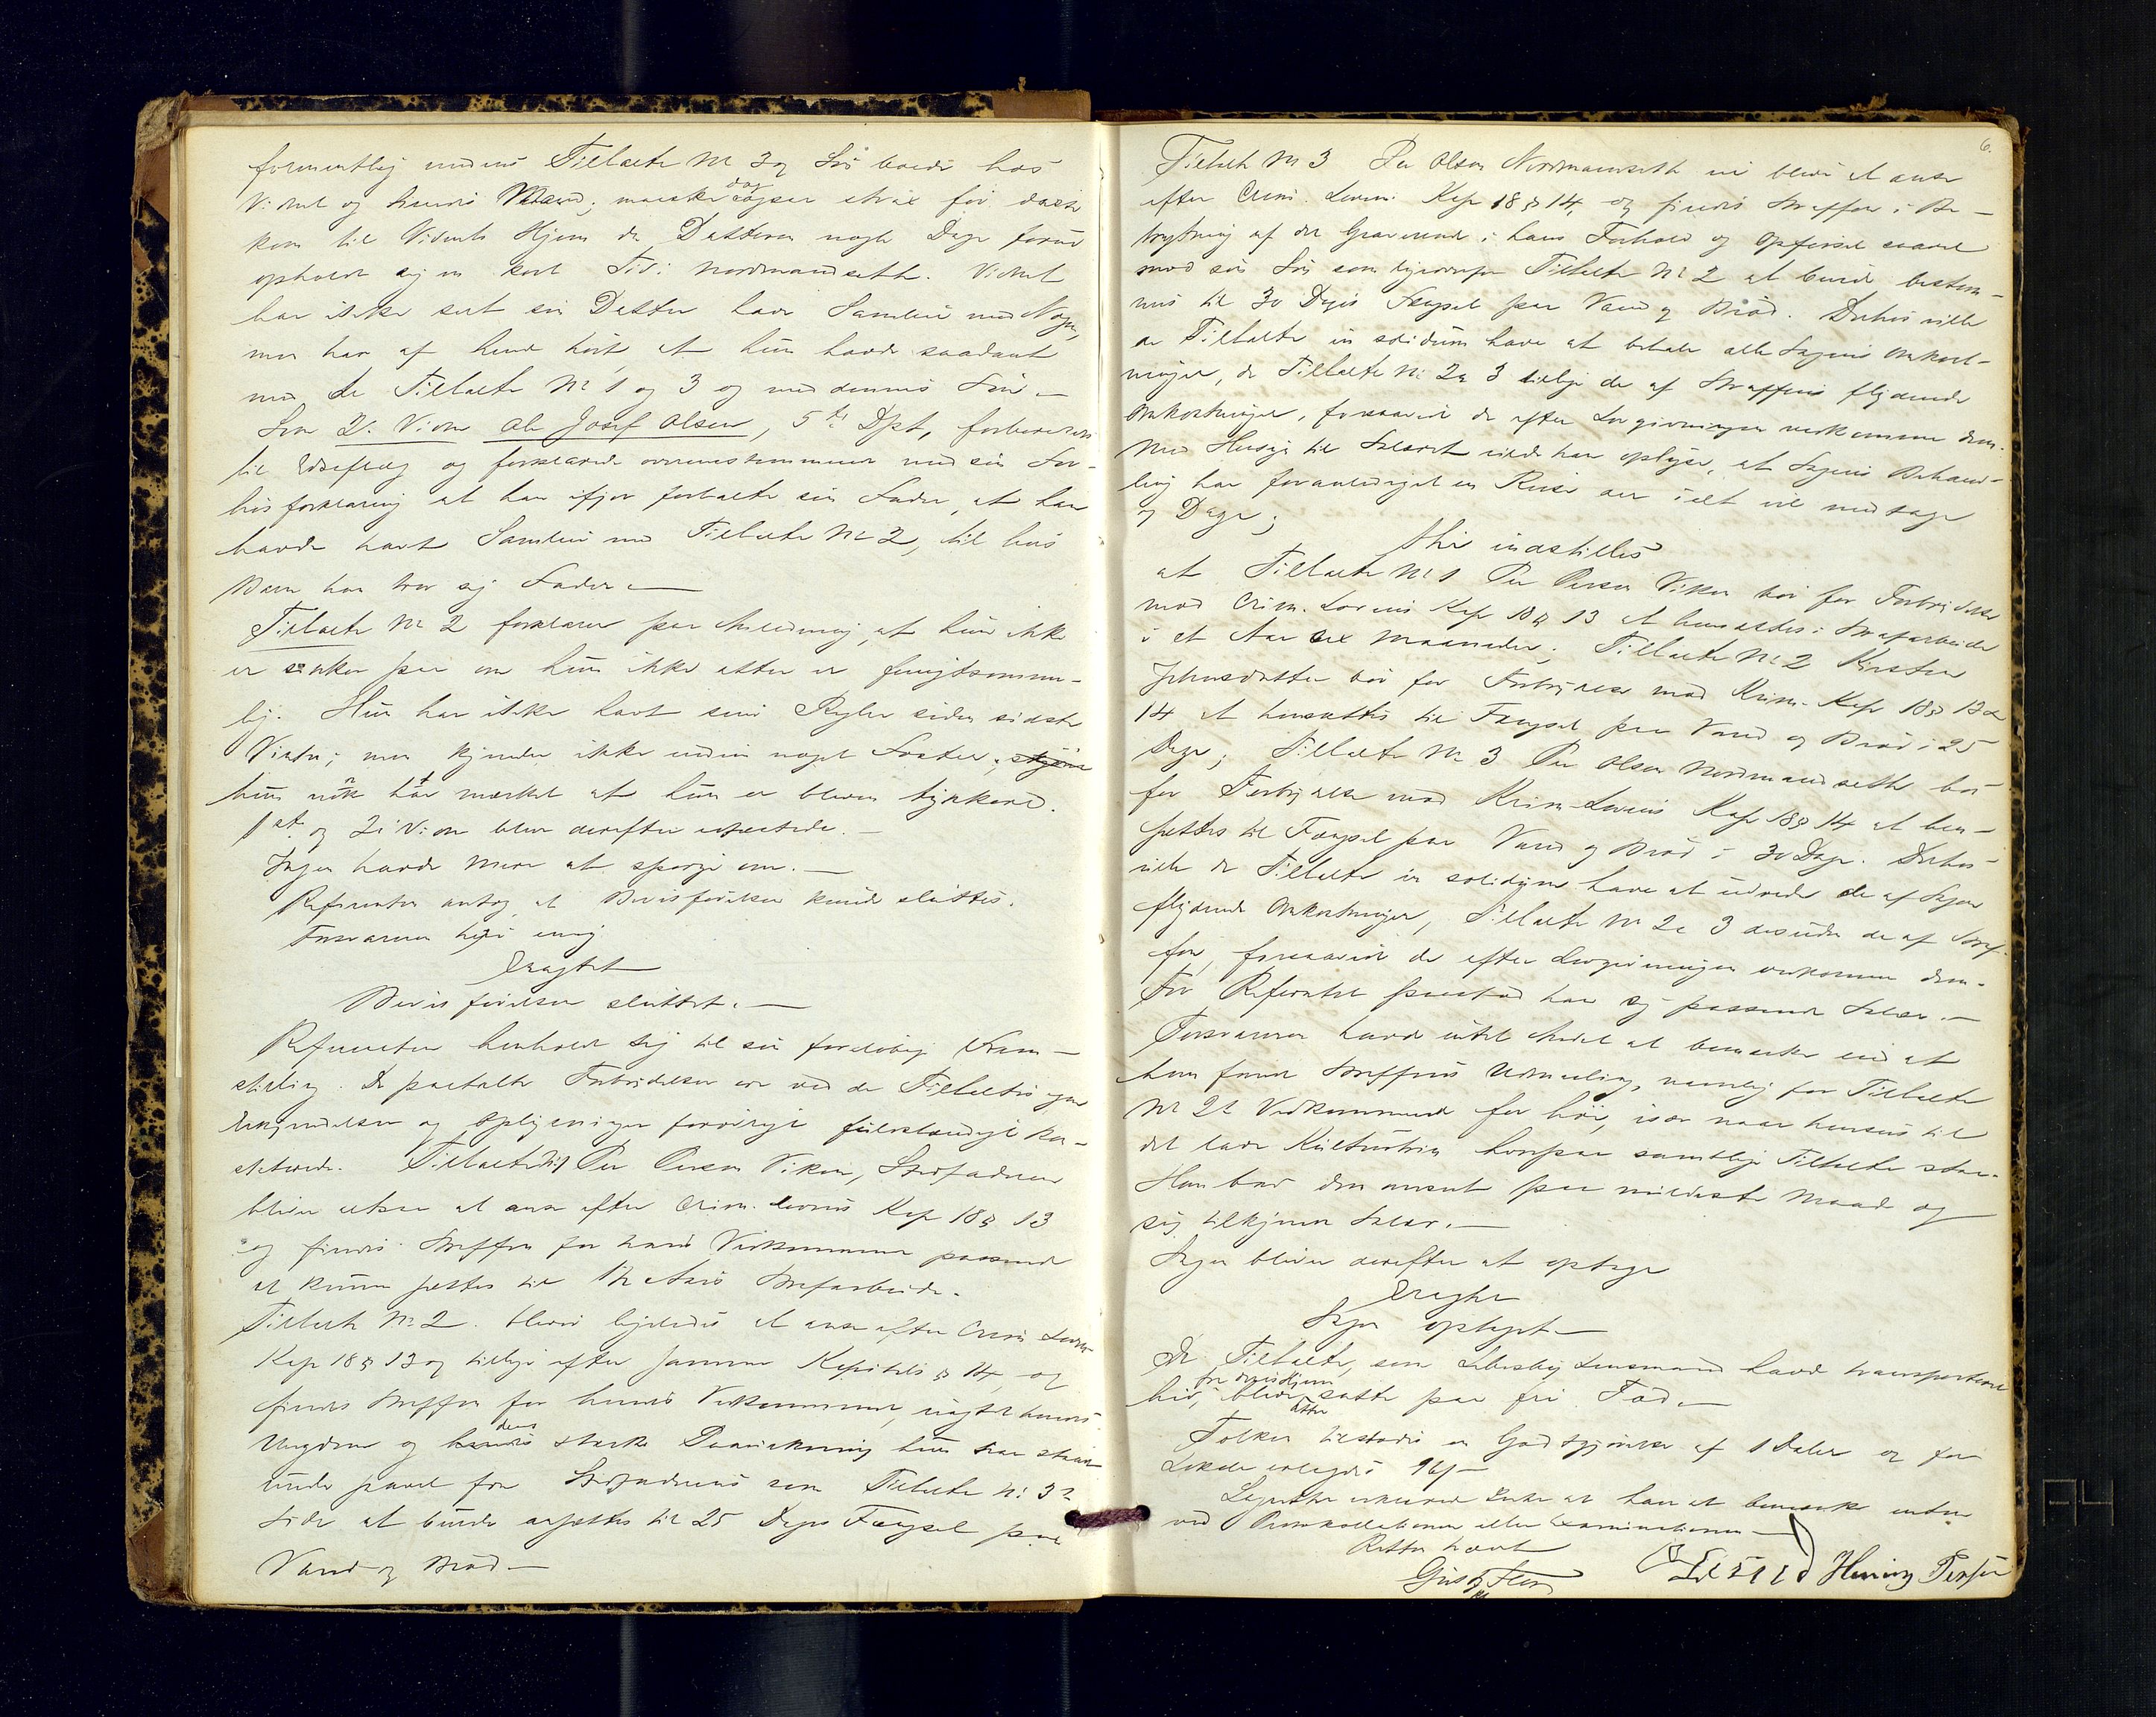 formentlig medens Tiltalte No 3 og Søn boede hos
Vidnet og hendes Mand; maaske dog ogsaa strax før disse
kom til Vidnets Hjem da Datteren nogle Dage forud
opholdt sig en kort Tid i Nordmandsætt. Vidnet
har ikke seet sin Datter have Samleie med Nogen,
men har af hende hørt at hun havde saadant
med de Tiltalte No 1 og 3 og med dennes Søn.—
Som 2. Vidne Ole Josef Olsen, 5te Dpt, forberedes
til Edsaflæg og forklarede overensstemmende med sin For-
hørsforklaring at han ifjor fortalte sin Fader, at han
havde havt Samleie med Tiltalte No 2, til hvis
Barn han tror sig Fader.—
Tiltalte No 2 forklarer paa Anledning, at hun ikke
er sikker paa om hun ikke atter er frugtsomme-
lig. Hun har ikke havt sine Regler siden sidste
Vinter; men kjender ikke endnu noget Foster;
hun nok har mærket at hun er bleven tykkere.
1ste og 2det Vidne blev derefter
Ingen havde mere at spørge om.—
Referenten antog at Bevisførelsen kunde sluttes.
Forsvareren heri enig
Eragtet
Bevisførelsen sluttet.—
Referenten henholdt sig til sin foreløbige Frem-
stilling. De paatalte Forbrydelser ere ved de Tiltaltes egne
Erkjendelser og Oplysninger forøvrigt fuldstændigt kon-
staterede. Tiltalte No 1 Per Persen Viken, Stedfaderen
bliver at anse efter Crim. Lovens Kap 18 § 13
og findes Straffen for hans Vedkommende passende
at kunne sættes til 1½ Aars Strafarbeide.
Tiltalte No 2. bliver ligeledes at anse efter Crim Lovens
Kap 18 § 13 og tillige efter samme Kapitels § 14, og
findes Straffen for hendes Vedkommende, uagtet hendes
Ungdom og den stærke Paavirkning hun har staaet
under saavel fra Stedfaderens som Tiltalte No 3s
Side at burde ansættes til 25 Dages Fængsel paa
Vand og Brød.—
6.
Tiltalte No 3 Per Olsen Nordmandsætt vil blive at anse
efter Crim. Lovens Kap 18 § 14, og findes Straffen i Be-
tragtning af det Graverende i hans Forhold og Opførsel saavel
mod sin Søn som ligeoverfor Tiltalte No 2 at burde bestem-
mes til 30 Dages Fængsel paa Vand og Brød. Derhos ville
de Tiltalte in solidum have at betale alle Sagens Omkost-
ninger, de Tiltalte No 2 & 3 tillige de af Straffens flydende
Omkostninger, forsaavidt de efter Lovgivningen vedkomme dem.
Med Hensyn til Salæret vilde han oplyse, at Sagens Behand-
ling har foranlediget en Reise der i alt vil medtage
og Dage;
Thi indstilles
at Tiltalte No 1 Per Persen Viken bør for Forbrydelse
mod Crim. Lovens Kap 18 § 13 at hensættes i Strafarbeide
i et Aar sex Maaneder; Tiltalte No 2 Kirsten
Johnsdatter bør for Forbrydelse mod Krim- Kap 18 § 13 &
14 at hensættes til Fængsel paa Vand og Brød i 25
Dage; Tiltalte No 3 Per Olsen Nordmandsætt bør
for Forbrydelse mod Krim-Lovens Kap 18 § 14 at hen-
sættes til Fængsel paa Vand og Brød i 30 Dage. Derhos
ville de Tiltalte in solidum have at udrede de af Sagen
flydende Omkostninger, Tiltalte No 2 & 3 desuden de af Straf-
fen, forsaavidt de efter Lovgivningen vedkomme dem.
For Referatet paastod han sig passende Salær.—
Forsvareren havde intet Andet at bemærke end at
han fandt Straffens Udmaaling, navnlig for Tiltalte
No 2s Vedkommende for høi, især naar hensees til
det lave Kulturtrin hvorpaa samtlige Tiltalte staa.
Han bad dem anseet paa mildeste Maade og
sig tilkjendt Salær.—
Sagen bliver derefter at optage
Eragtet
Sagen optaget—
De Tiltalte, som Lebesby Lensmand havde transporteret
hid, bleve atter satte paa fri Fod.—
Tolken tilstodes en Godtgjørelse af 1 Daler og for
Lokale erlagdes 96 s—
Lagrettet erklærede Intet at have at bemærke enten
ved Protokollationen eller Examinationen—
Retten hævet
Henning Persen